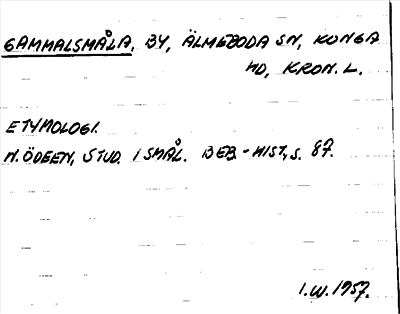 GAMMALSMÅLA, BY, ÄLMEBODA SN, KONGA
HD, KRON. L.
ETYMOLOGI.
N. ÖDEEN, STUD. I SMÅL. BEB.-HIST, S. 87.
I.W. 1957.